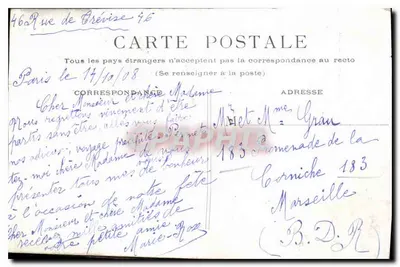 46 Rue de Trévise 46
CARTE POSTALE
Tous les pays étrangers n'acceptent pas la correspondance au recto
(Se renseigner à la poste)
Paris le 17/10/08
CORRESPONDANCE
Cher Monsieur et chère Madame
Nous regrettons vivement d'être
partis sans être allés vous faire
nos adieux, voyage précipité.
moi chère Madame de
présenter tous mes de bonheur
à l'occasion de votre fête
cher Monsieur et chère Madame
recevez
petite amie
Marie-Rose
ADRESSE
M. et Mme Grau
183 Promenade de la
Corniche 183
Marseille
(B. D. R)